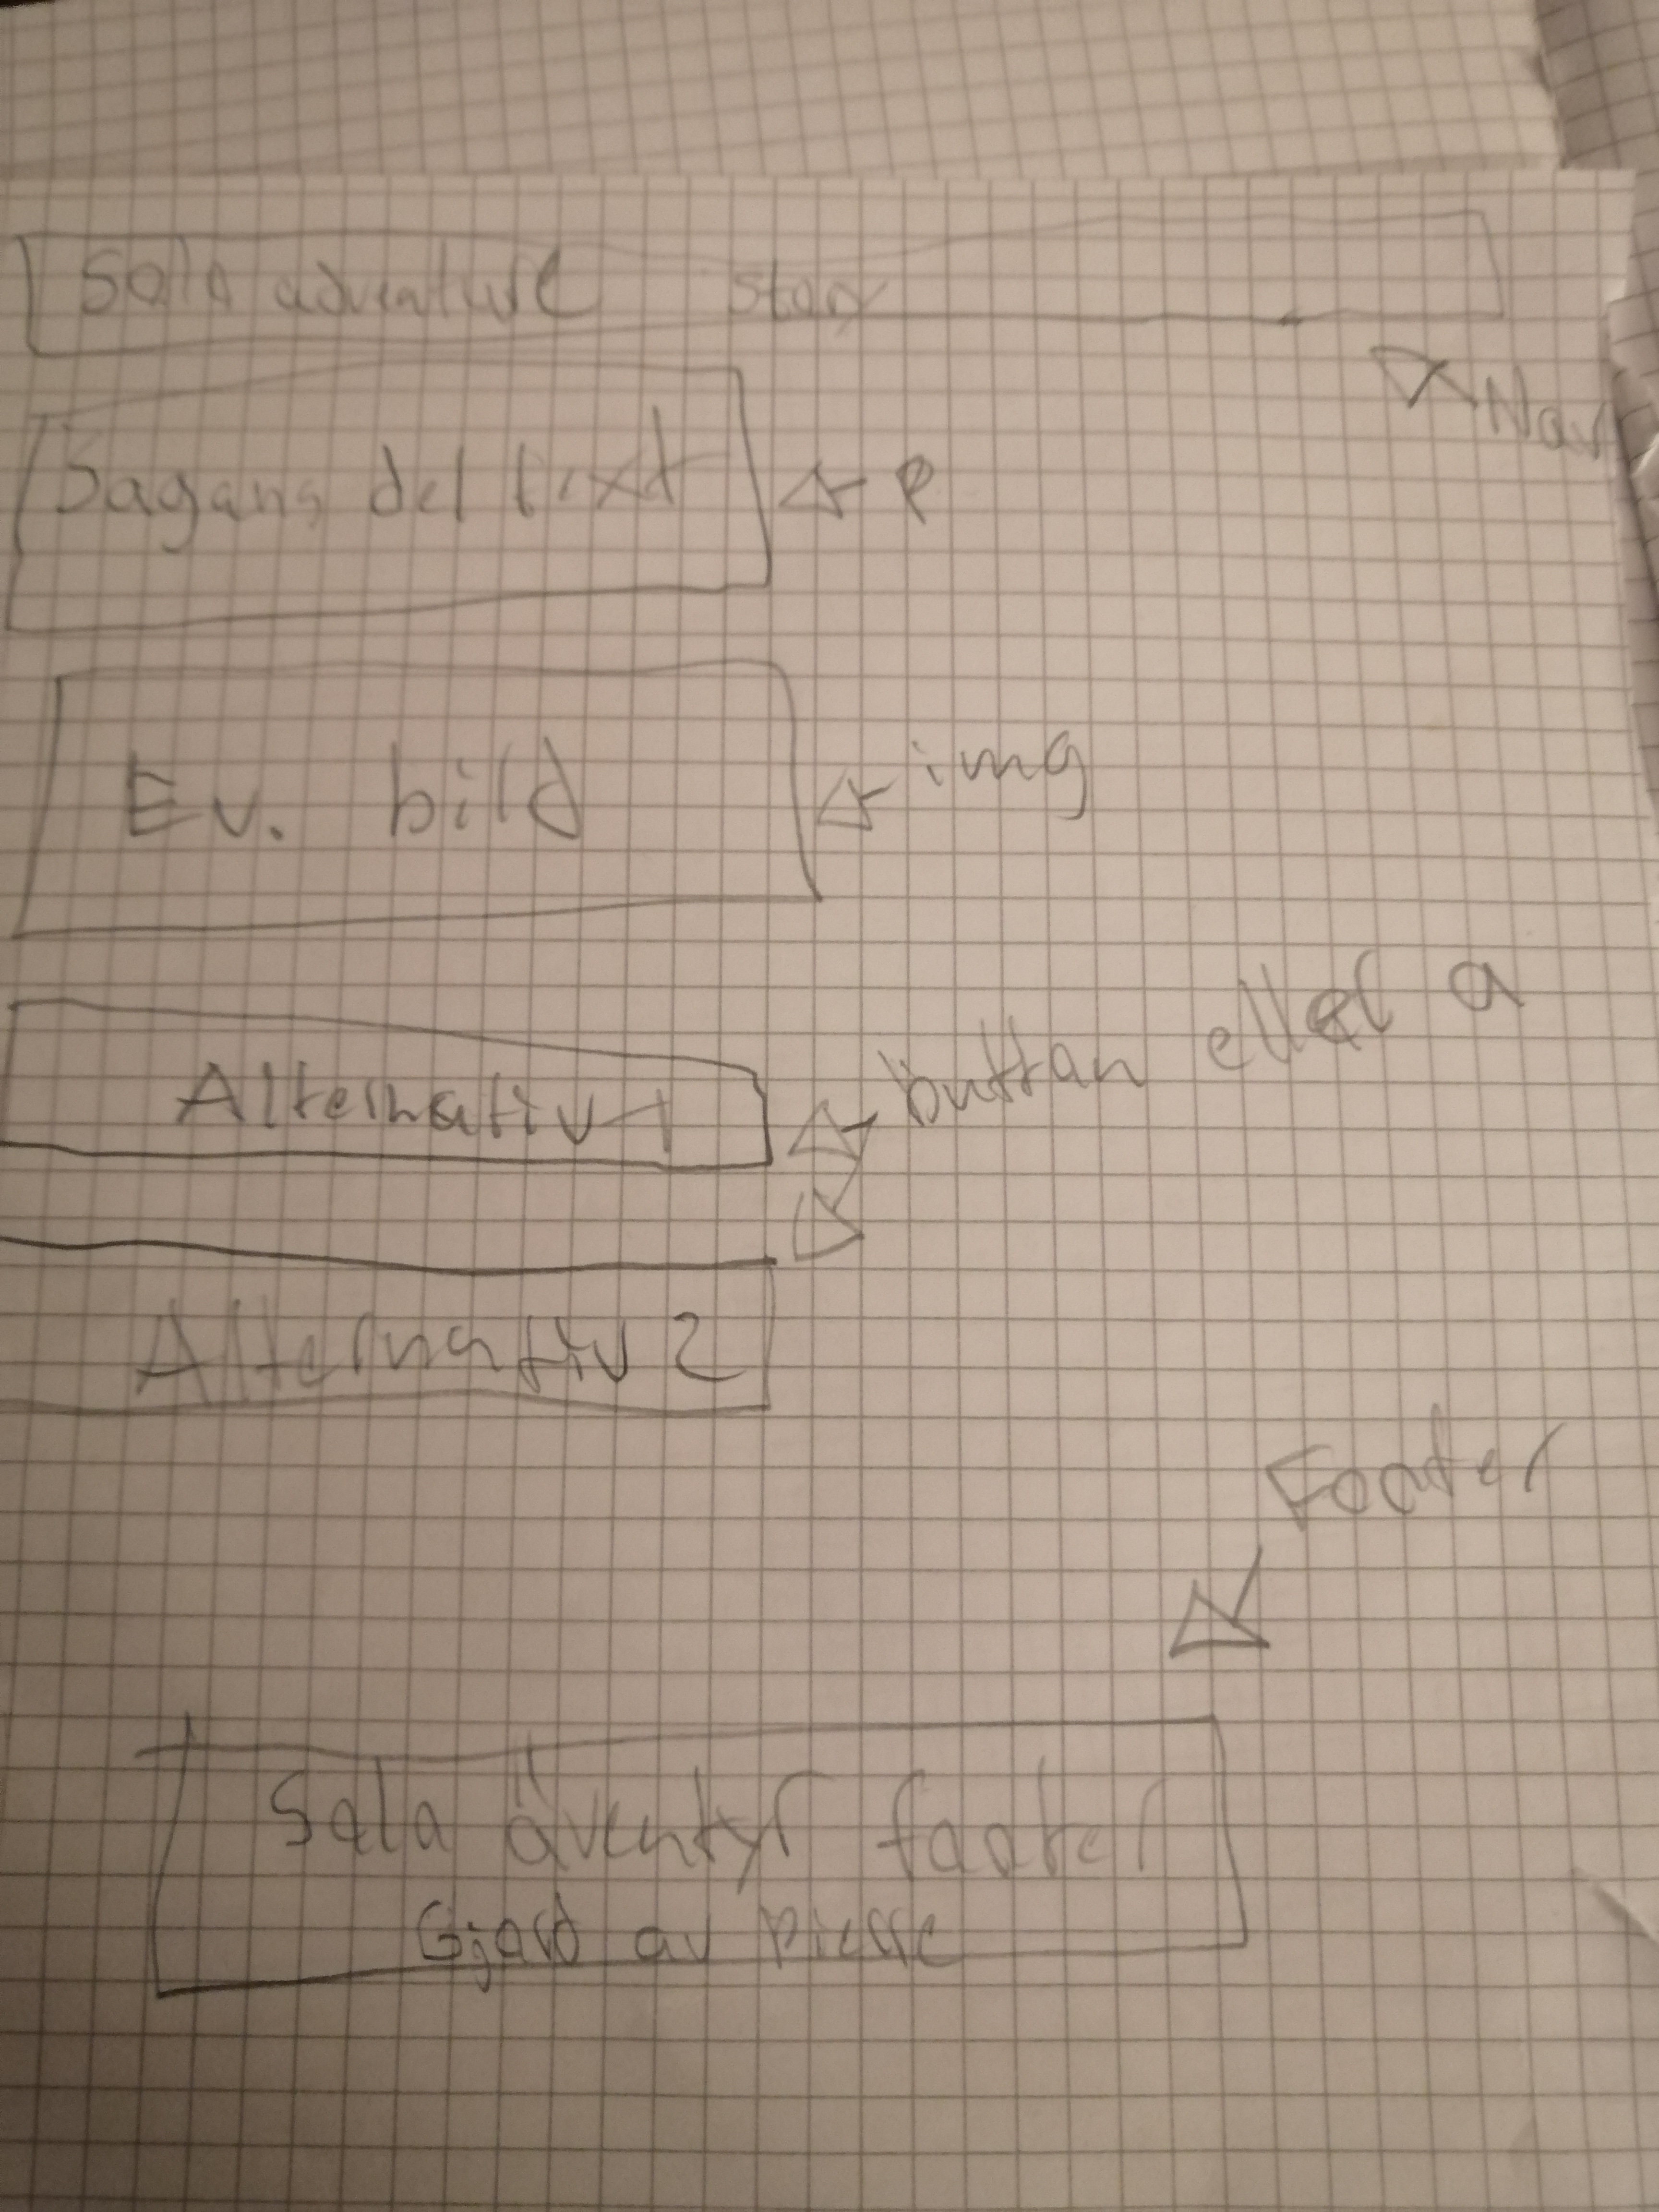 Solo adventure story
Nav
Sagans del text
P
Ev. bild
img
Alternativ 1
button eller a
Alternativ 2
Footer
Solo äventyr footer
Gjord av Pierre